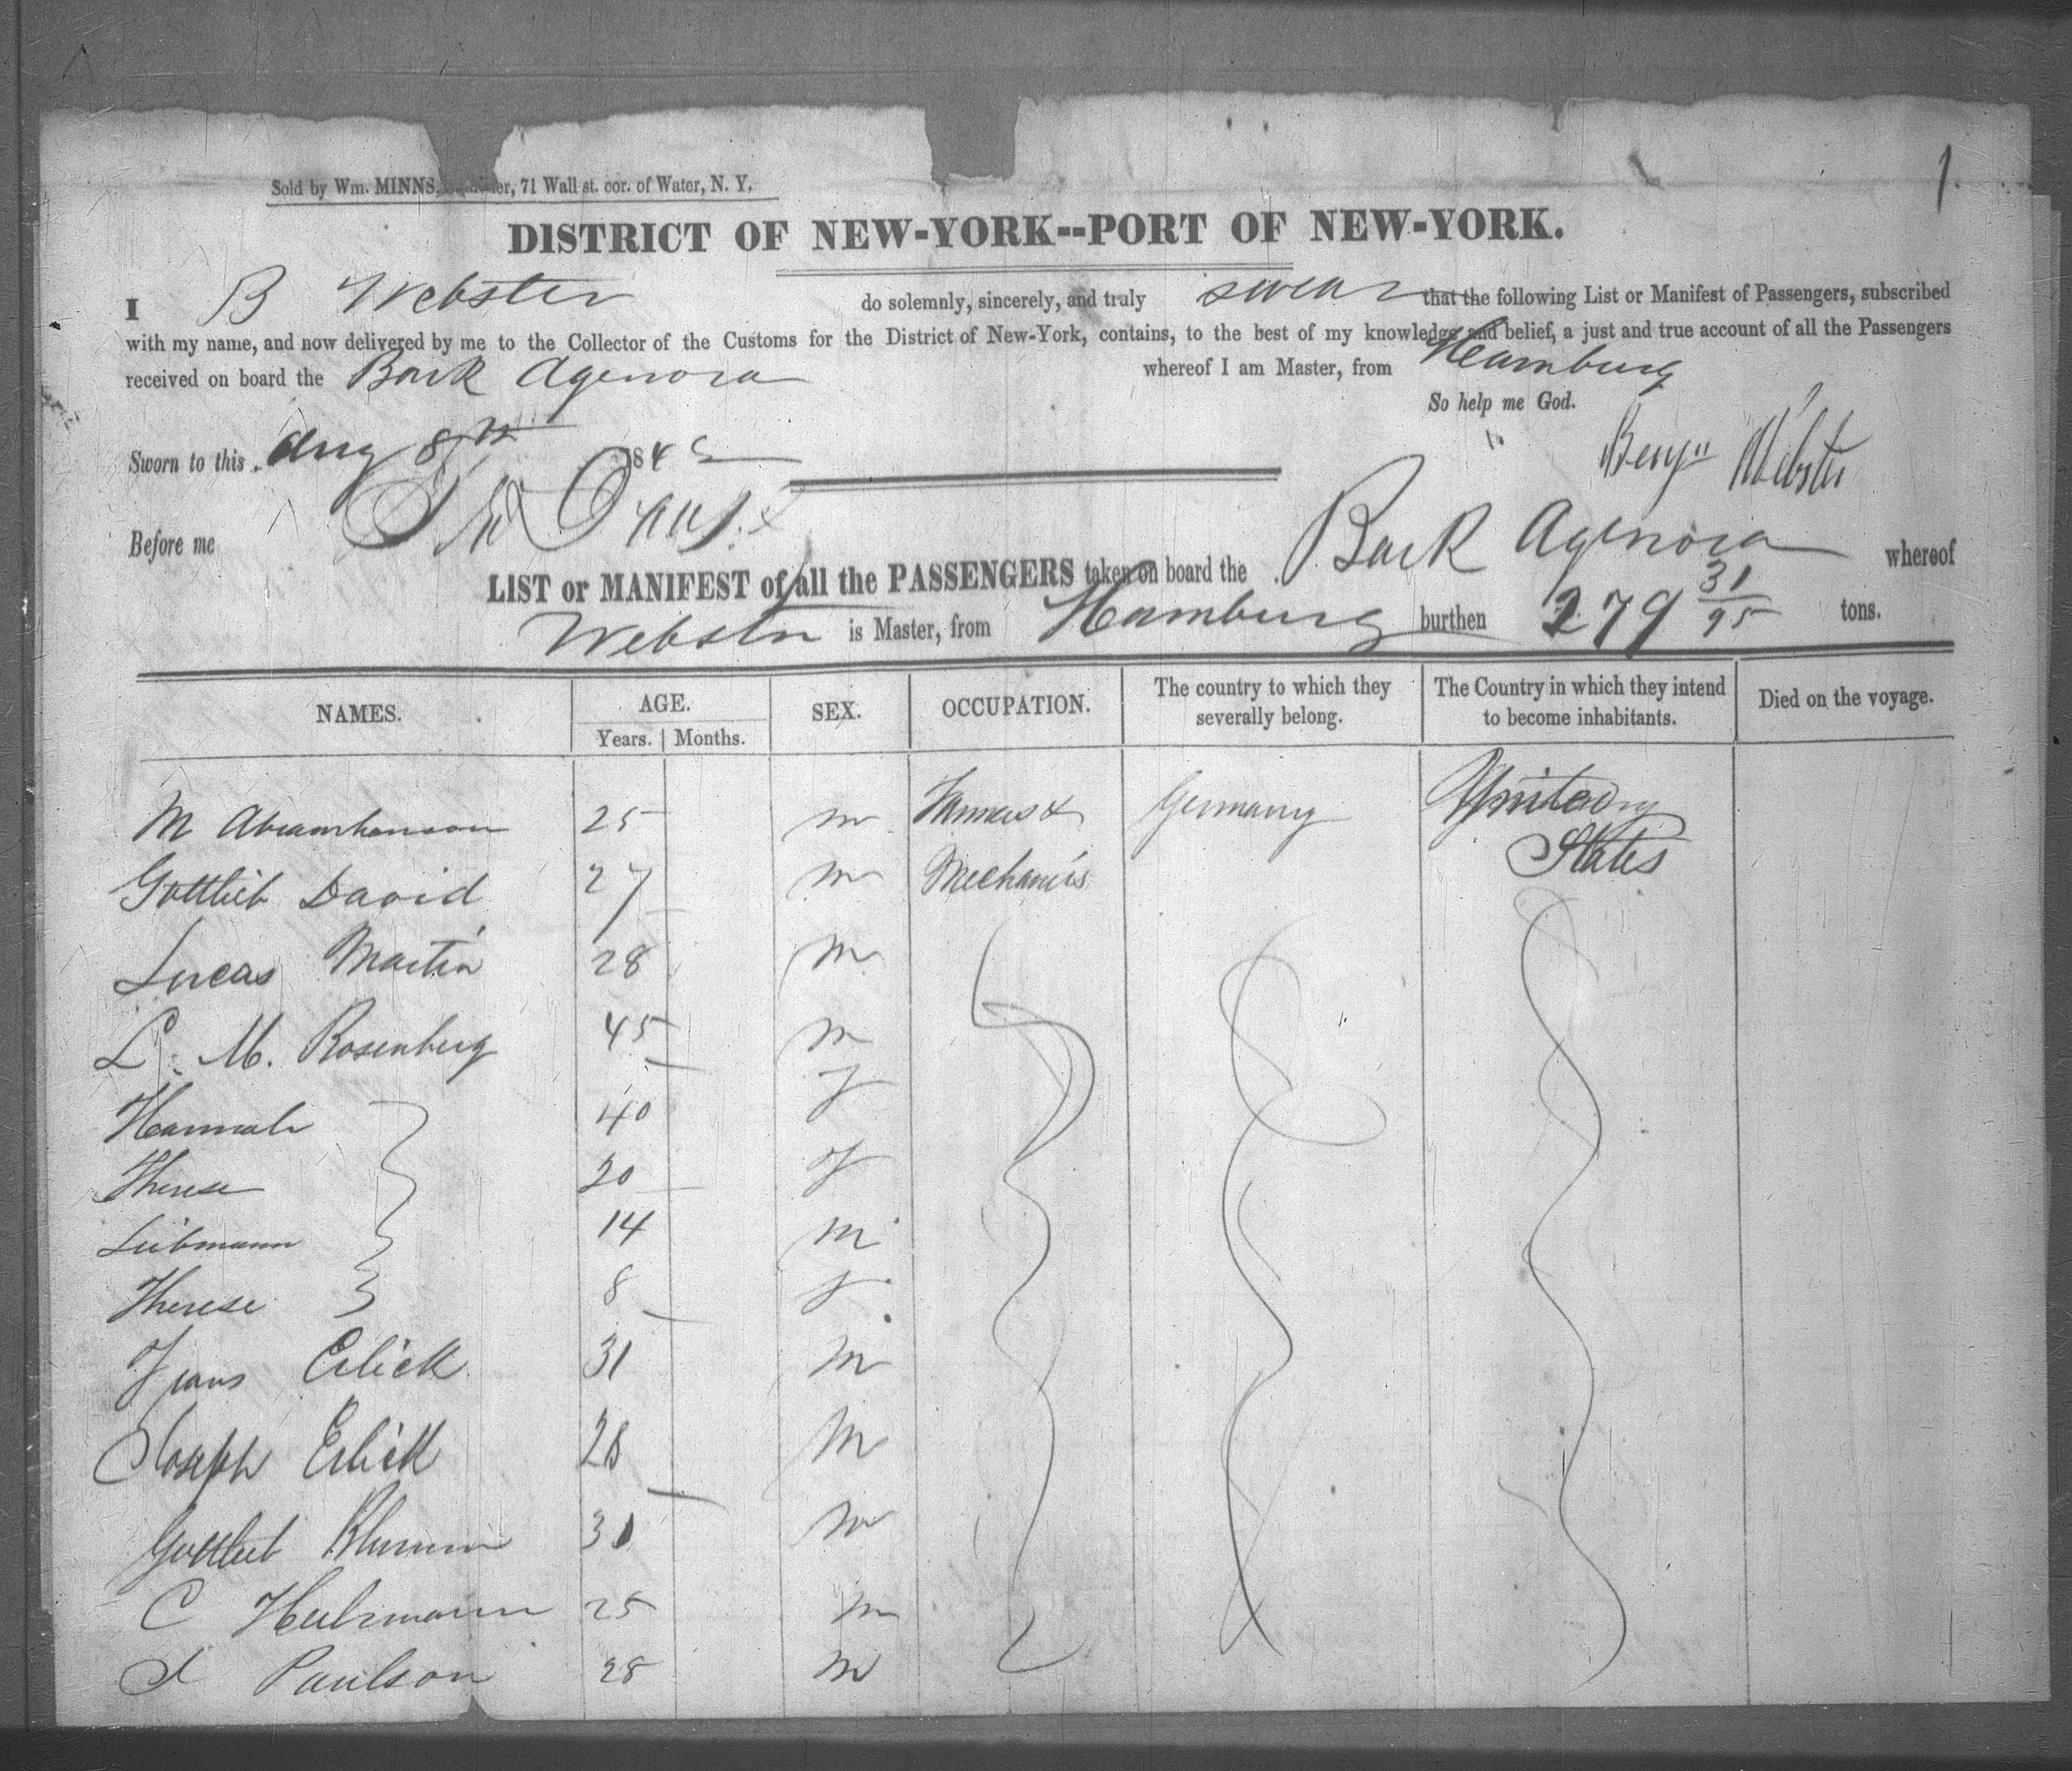 1
Sold by Wm. MINNS, 71 Wall st. cor. of Water, N. Y.
DISTRICT OF NEW-YORK--PORT OF NEW-YORK.
I B Webster do solemnly, sincerely, and truly swear that the following List or Manifest of Passengers, subscribed
with my name, and now delivered by me to the Collector of the Customs for the District of New-York, contains, to the best of my knowledge and belief, a just and true account of all the Passengers
received on board the Bark Agenora whereof I am Master, from Hamburg
So help me God.
Sworn to this Aug 8th 184 Benjn Webster
Before me
LIST or MANIFEST of all the PASSENGERS taken on board the Bark Agenora whereof
Webster is Master, from Hamburg burthen 279 31/95 tons.
NAMES. AGE. SEX. OCCUPATION. The country to which they severally belong. The Country in which they intend to become inhabitants. Died on the voyage.
Years. Months.
M Abramhamson 25 m Farmers & Germany United
States
Gottlieb David 27 m Mechanics
Lucas Martin 28 m
L. M. Rosenberg 45 m
Hannah 40 f
Therese 20 f
Liebmann 14 m
Therese 8 f
Frans Erlick 31 m
Joseph Erlick 28 m
Gottlieb 31 m
C 25 m
Paulson 28 m